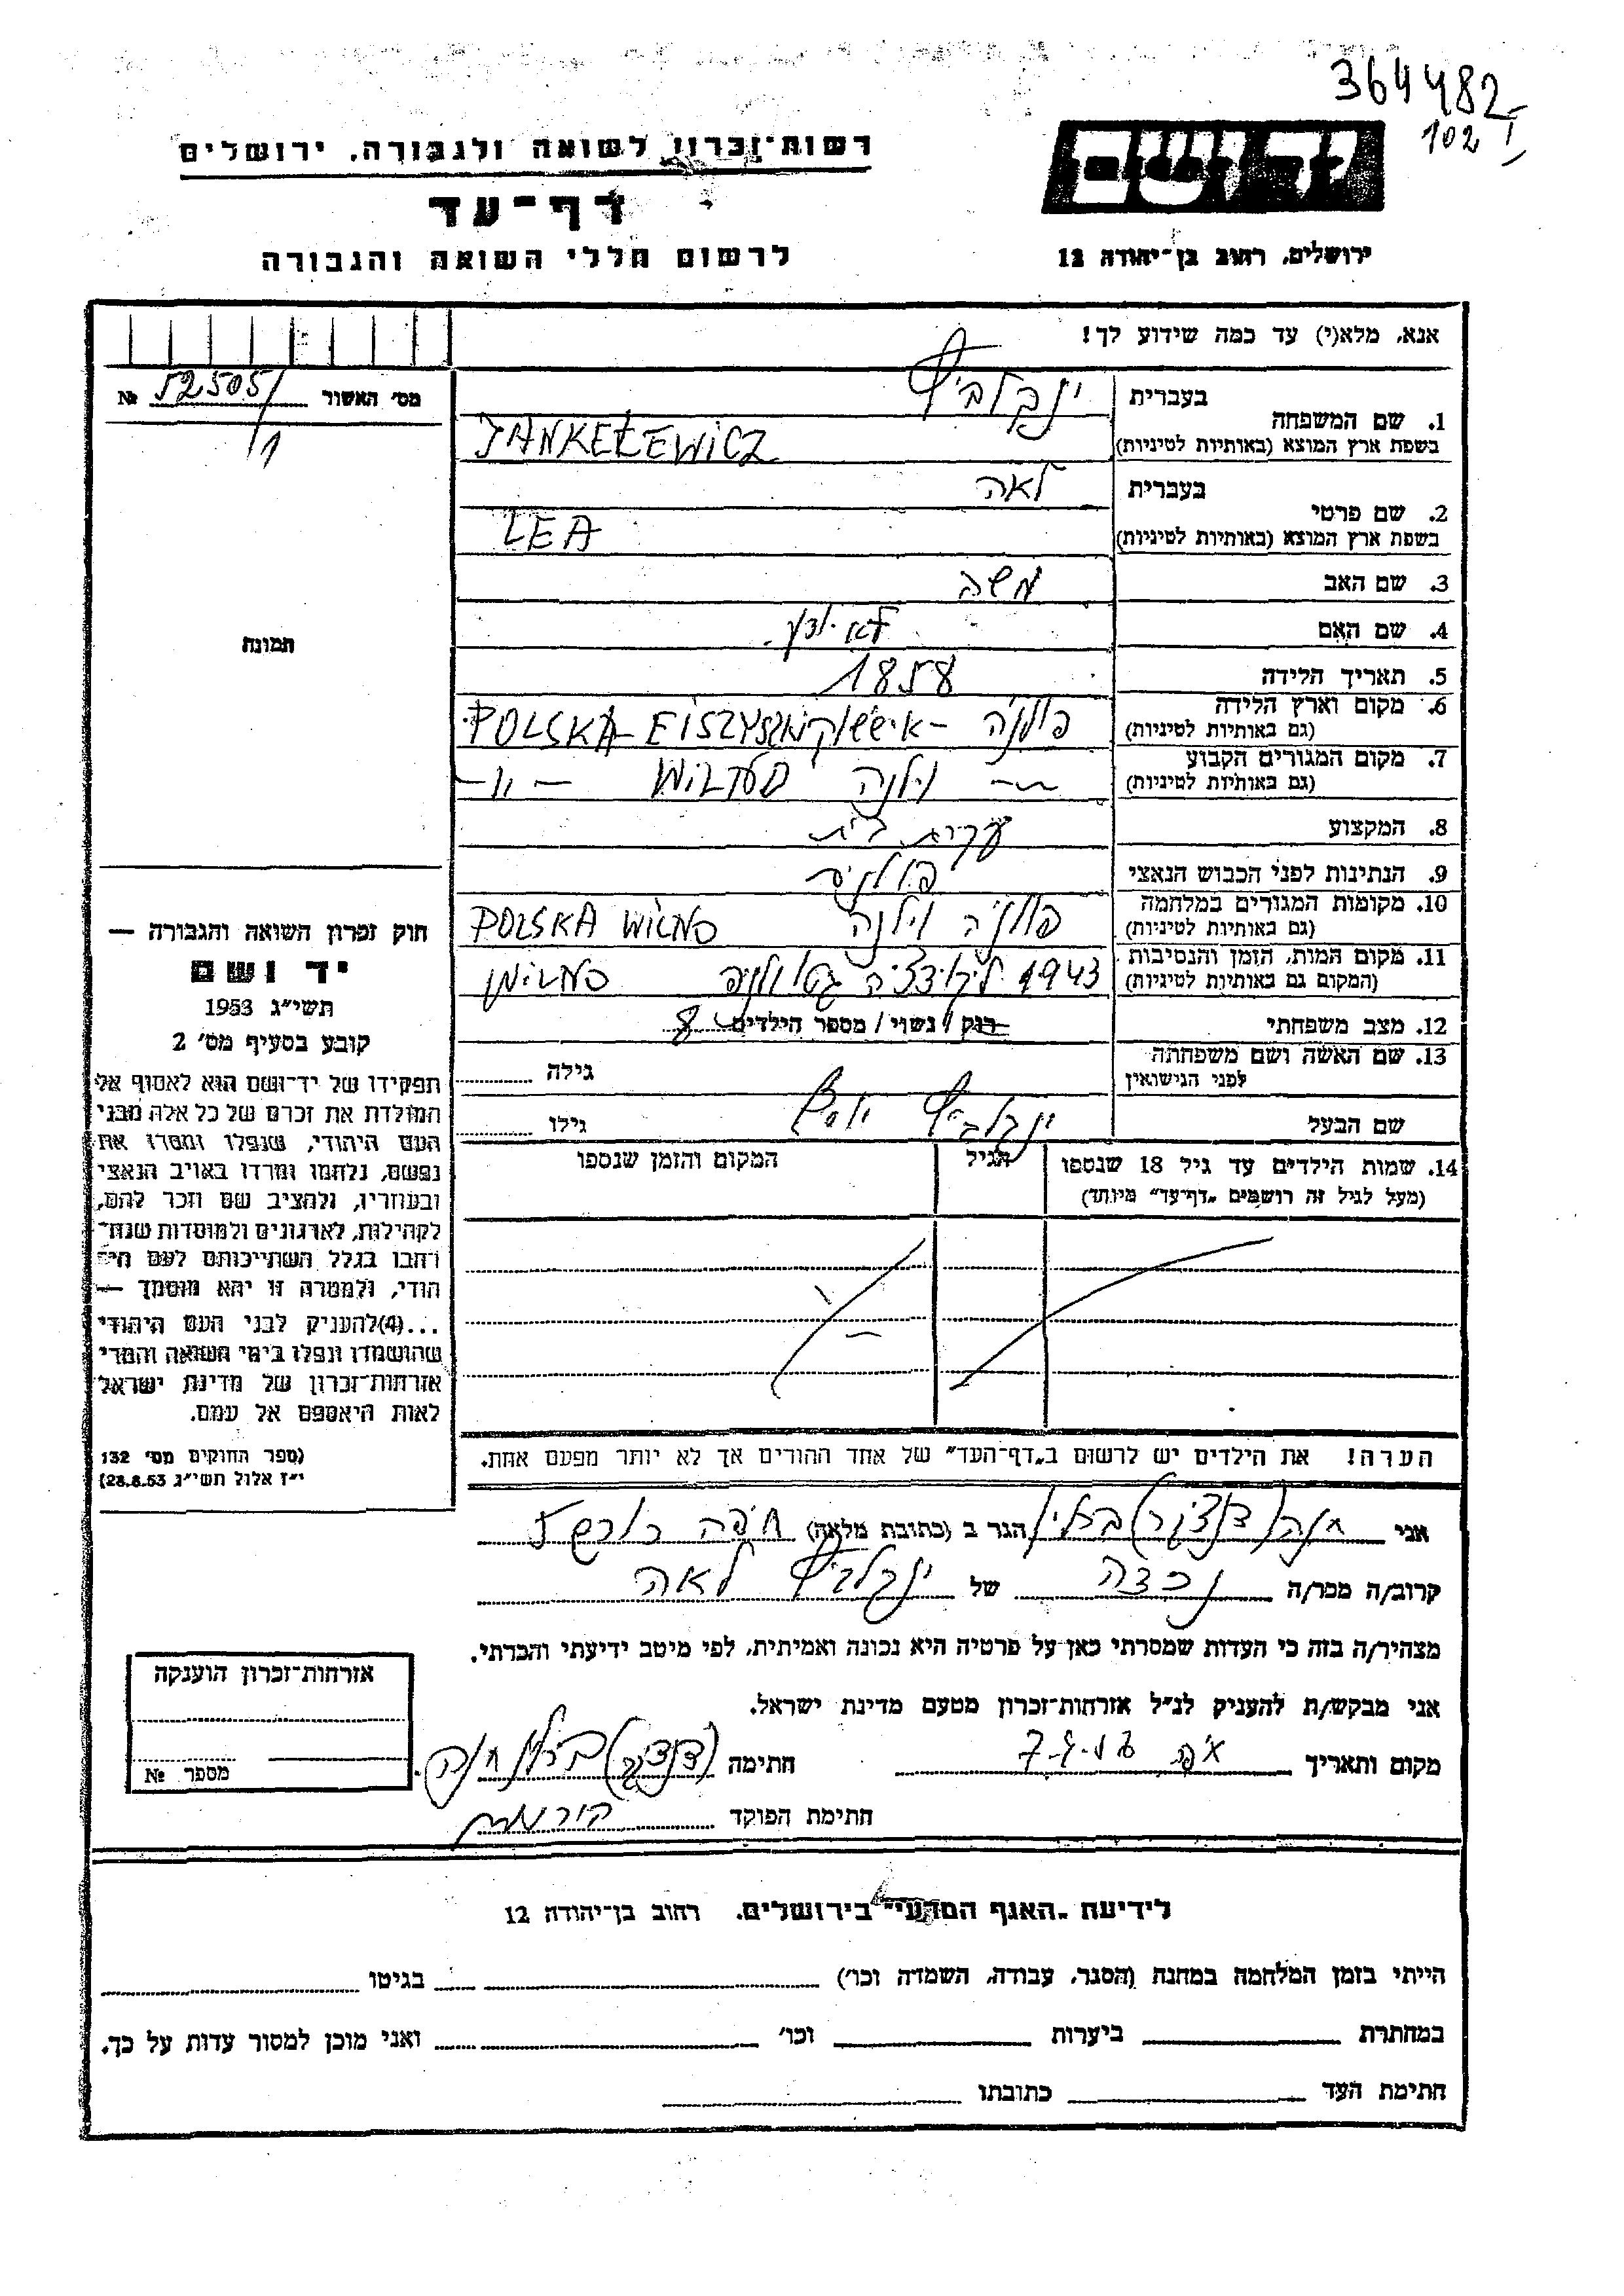 364482
102 I
יד ושם
ירושלים, רחוב בן-יהודה 12
רשות-זכרון לשואה ולגבורה, ירושלים
דף-עד
לרשום חללי השואה והגבורה
אנא, מלא(י) עד כמה שידוע לך!
מס' האשור № 52505/1
תמונה
1. שם המשפחה
בעברית ינקלביץ
בשפת ארץ המוצא (באותיות לטיניות) JANKEŁEWICZ
2. שם פרטי
בעברית לאה
בשפת ארץ המוצא (באותיות לטיניות) LEA
3. שם האב משה
4. שם האם
5. תאריך הלידה 1858
6. מקום וארץ הלידה
(גם באותיות לטיניות) פולניה - POLSKA - EISZYSZKI
7. מקום המגורים הקבוע
(גם באותיות לטיניות) -"- וילנה WILNO -"-
8. המקצוע עקרת בית
9. הנתינות לפני הכבוש הנאצי פולנית
10. מקומות המגורים במלחמה
(גם באותיות לטיניות) פולניה וילנה POLSKA WILNO
11. מקום המות, הזמן והנסיבות
(המקום גם באותיות לטיניות) 1943 ליקוידציה גטו וילנה WILNO
12. מצב משפחתי רוק / נשוי / מספר הילדים 8
13. שם האשה ושם משפחתה
לפני הנישואין
גילה
שם הבעל ינקלביץ יוסף
גילו
14. שמות הילדים עד גיל 18 שנספו
(מעל לגיל זה רושמים "דף-עד" מיוחד)
הגיל
המקום והזמן שנספו
הערה! את הילדים יש לרשום ב"דף-העד" של אחד ההורים אך לא יותר מפעם אחת.
חוק זכרון השואה והגבורה —
יד ושם
תשי"ג 1953
קובע בסעיף מס' 2
תפקידו של יד-ושם הוא לאסוף אל
המולדת את זכרם של כל אלה מבני
העם היהודי, שנפלו ומסרו את
נפשם, נלחמו ומרדו באויב הנאצי
ובעוזריו, ולהציב שם וזכר להם,
לקהילות, לארגונים ולמוסדות שנח-
רחבו בגלל השתייכותם לעם הי-
הודי, ולמטרה זו יהא מוסמך —
...(4)להעניק לבני העם היהודי
שהושמדו ונפלו בימי השואה והמרי
אזרחות-זכרון של מדינת ישראל
לאות היאספם אל עמם.
(ספר החוקים מס' 132
י"ז אלול תשי"ג 28.8.53)
אני חנה (דנציגר) ברלין הגר ב (כתובת מלאה) חיפה
קרוב/ה מכר/ה נכדה של ינקלביץ לאה
מצהיר/ה בזה כי העדות שמסרתי כאן על פרטיה היא נכונה ואמיתית, לפי מיטב ידיעתי והכרתי.
אני מבקש/ת להעניק לנ"ל אזרחות-זכרון מטעם מדינת ישראל.
מקום ותאריך חיפה
חתימה (דנציגר) ברלין חנה
חתימת הפוקד
אזרחות-זכרון הוענקה
מספר №
לידיעת "האגף המדעי" בירושלים, רחוב בן-יהודה 12
הייתי בזמן המלחמה במחנה (הסגר, עבודה, השמדה וכו') בגיטו
במחתרת ביערות וכו' ואני מוכן למסור עדות על כך.
חתימת העד כתובתו